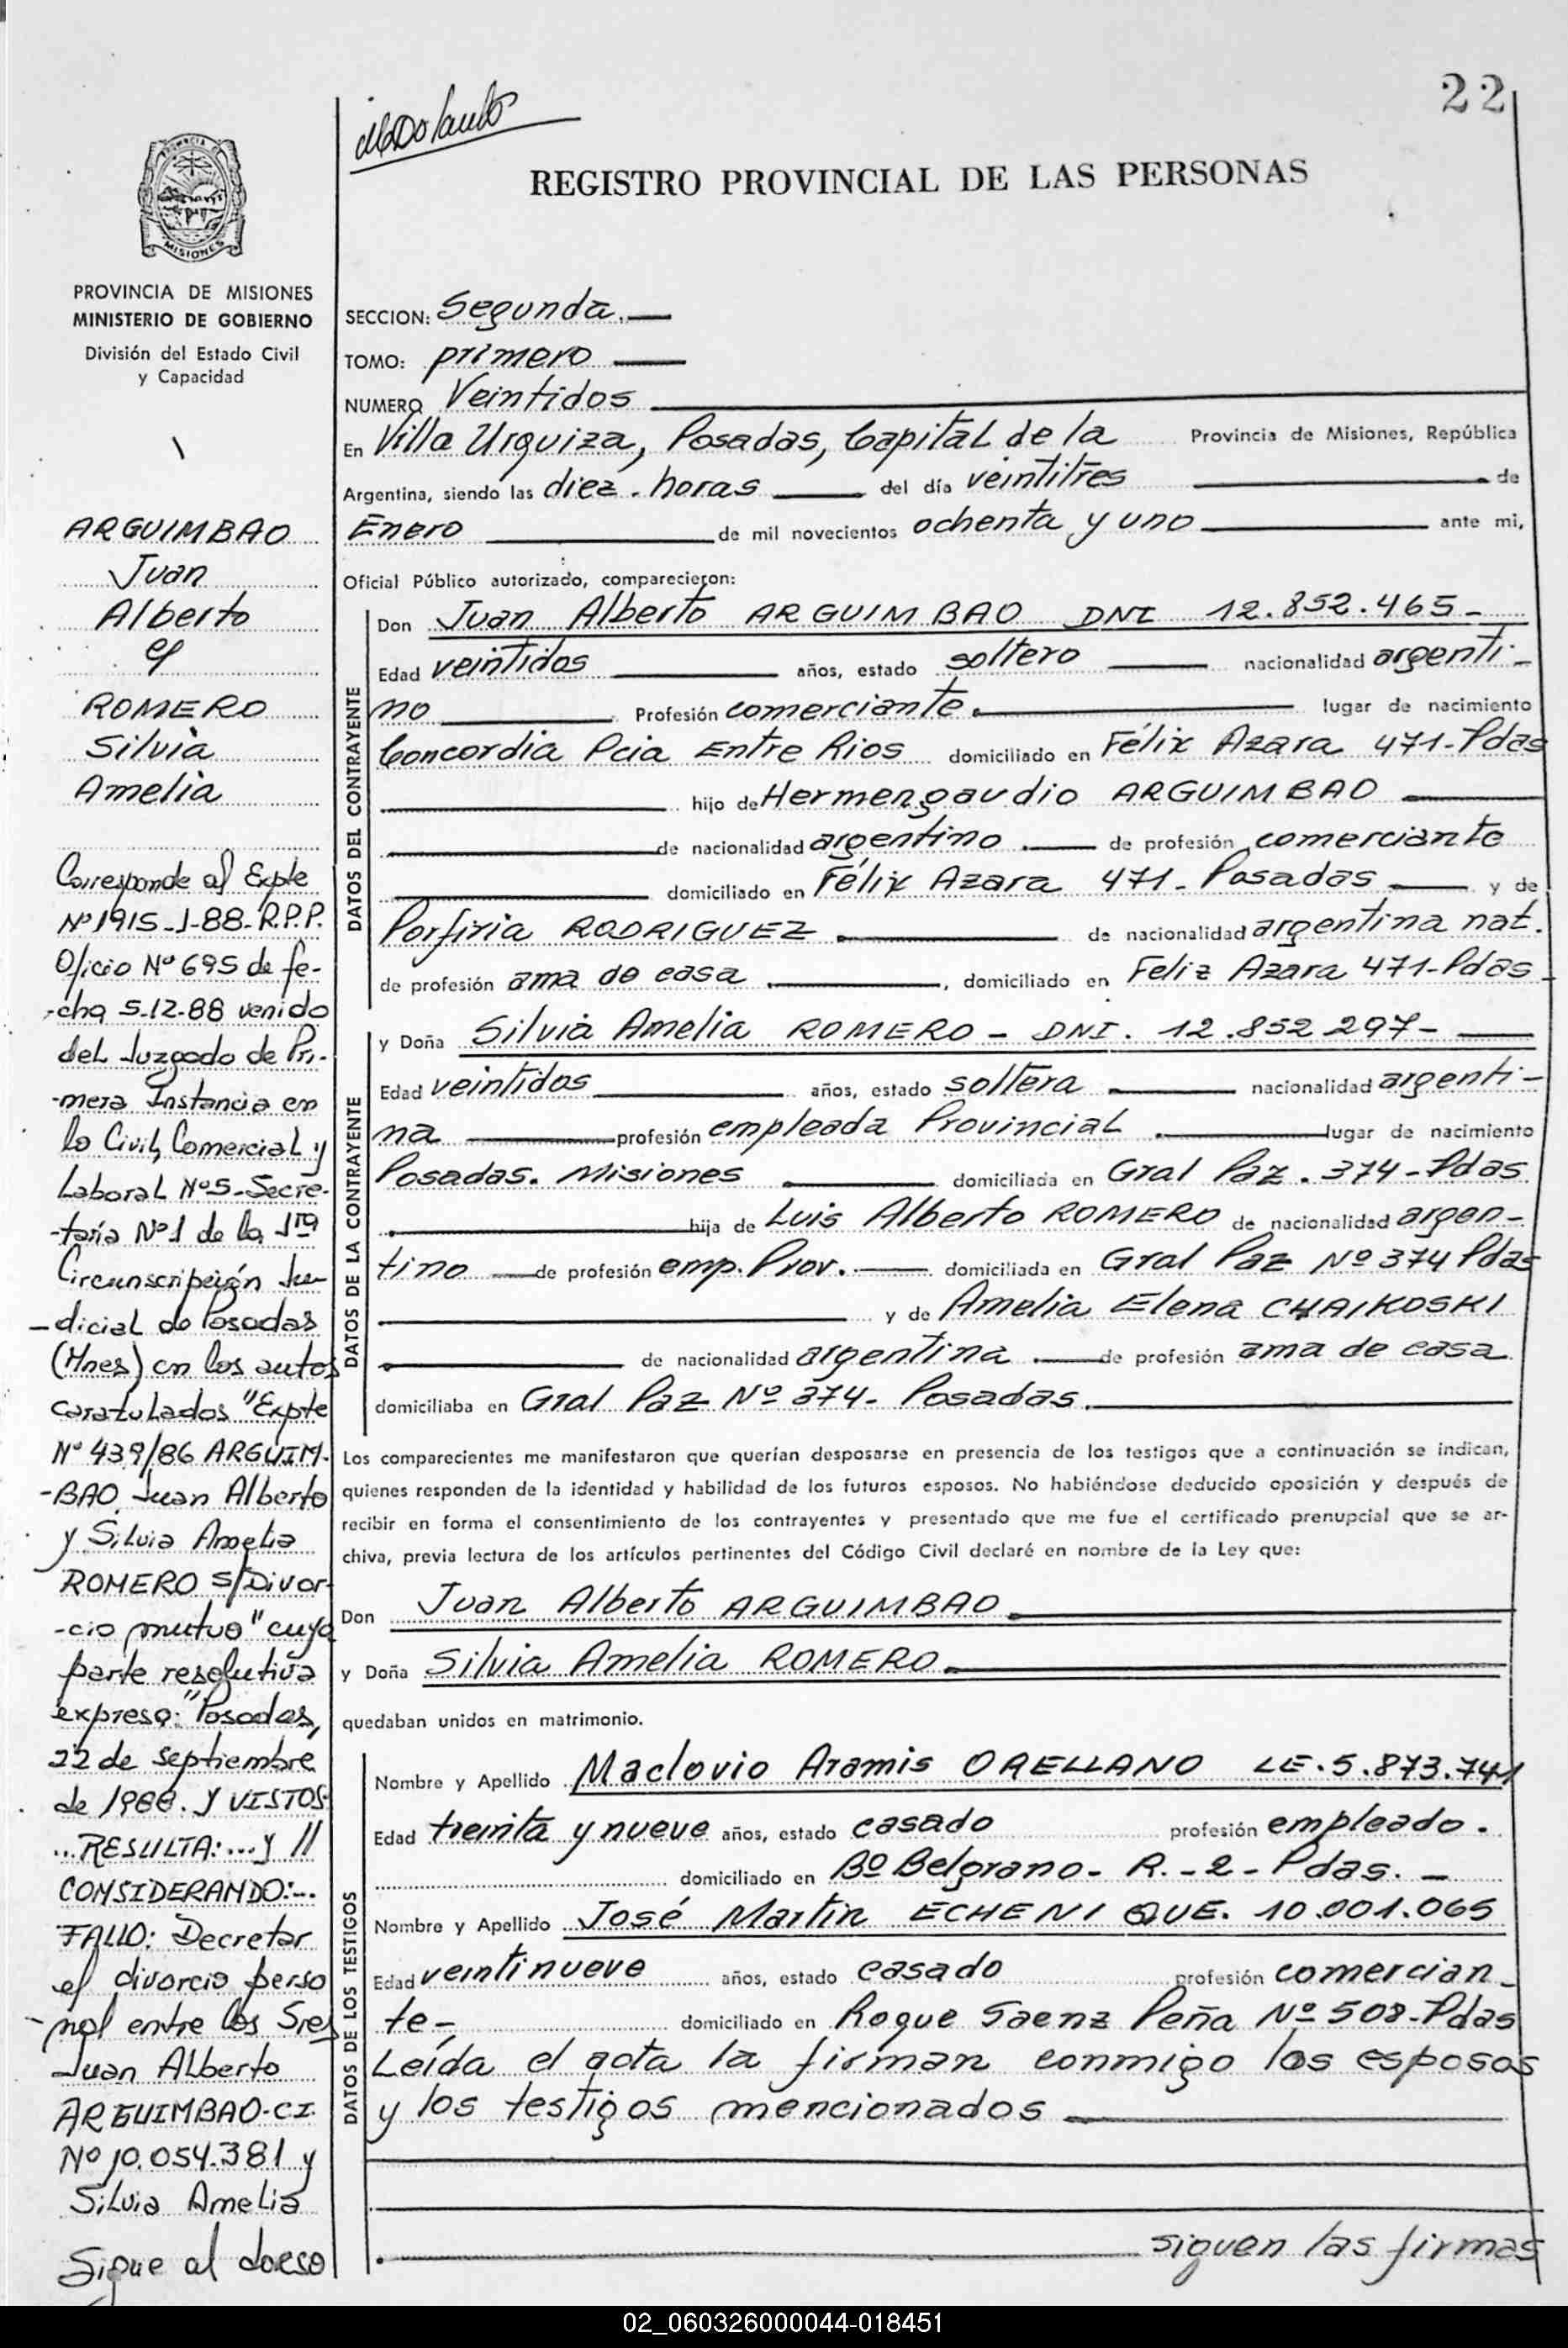 22
REGISTRO PROVINCIAL DE LAS PERSONAS
MISIONES
PROVINCIA DE MISIONES
MINISTERIO DE GOBIERNO
División del Estado Civil
y Capacidad
ARGUIMBAO
Juan
Alberto
y
ROMERO
Silvia
Amelia
Corresponde al Expte
Nº 1915-J-88-R.P.P.
Oficio Nº 695 de fe-
-cha 5-12-88 venido
del Juzgado de Pri-
-mera Instancia en
lo Civil, Comercial y
Laboral Nº5-Secre-
-taría Nº1 de la 1ra
Circunscripción Ju-
-dicial de Posadas
(Mnes) en los autos
caratulados "Expte
Nº 439/86 ARGUIM-
-BAO Juan Alberto
y Silvia Amelia
ROMERO S/Divor-
-cio mutuo" cuya
parte resolutiva
expresa: "Posadas,
22 de septiembre
de 1988. Y VISTOS:
...RESULTA:...y //
CONSIDERANDO:...
FALLO: Decretar
el divorcio perso
-nal entre los Sres
Juan Alberto
ARGUIMBAO-CI.
Nº 10.054.381 y
Silvia Amelia
Sigue al dorso
SECCION: Segunda.
TOMO: primero
NUMERO Veintidos
En Villa Urquiza, Posadas, Capital de la Provincia de Misiones, República
Argentina, siendo las diez. horas del día veintitres de
Enero de mil novecientos ochenta y uno ante mi,
Oficial Público autorizado, comparecieron:
DATOS DEL CONTRAYENTE
Don Juan Alberto ARGUIMBAO DNI 12.852.465-
Edad veintidos años, estado soltero nacionalidad argenti-
no Profesión comerciante. lugar de nacimiento
Concordia Pcia Entre Rios domiciliado en Félix Azara 471-Pdas
hijo de Hermengaudio ARGUIMBAO
de nacionalidad argentino de profesión comerciante
domiciliado en Félix Azara 471- Posadas y de
Porfiria RODRIGUEZ de nacionalidad argentina nat.
de profesión ama de casa, domiciliado en Feliz Azara 471-Pdas
DATOS DE LA CONTRAYENTE
y Doña Silvia Amelia ROMERO - DNI. 12.852.297-
Edad veintidos años, estado soltera nacionalidad argenti-
na profesión empleada Provincial lugar de nacimiento
Posadas. Misiones domiciliada en Gral Paz. 374-Pdas
hija de Luis Alberto ROMERO de nacionalidad argen-
tino de profesión emp. Prov. domiciliada en Gral Paz Nº 374 Pdas
y de Amelia Elena CHAIKOSKI
de nacionalidad argentina de profesión ama de casa
domiciliaba en Gral Paz Nº 374- Posadas.
Los comparecientes me manifestaron que querían desposarse en presencia de los testigos que a continuación se indican,
quienes responden de la identidad y habilidad de los futuros esposos. No habiéndose deducido oposición y después de
recibir en forma el consentimiento de los contrayentes y presentado que me fue el certificado prenupcial que se ar-
chiva, previa lectura de los artículos pertinentes del Código Civil declaré en nombre de la Ley que:
Don Juan Alberto ARGUIMBAO
y Doña Silvia Amelia ROMERO
quedaban unidos en matrimonio.
DATOS DE LOS TESTIGOS
Nombre y Apellido Maclovio Aramis ORELLANO LE.5.873.741
Edad treinta y nueve años, estado casado profesión empleado.
domiciliado en Bº Belgrano- R.-2-Pdas.-
Nombre y Apellido José Martin ECHENIQUE. 10.001.065
Edad veintinueve años, estado casado profesión comercian-
te- domiciliado en Roque Saenz Peña Nº 508-Pdas
Leída el acta la firman conmigo los esposos
y los testigos mencionados
siguen las firmas
02_060326000044-018451